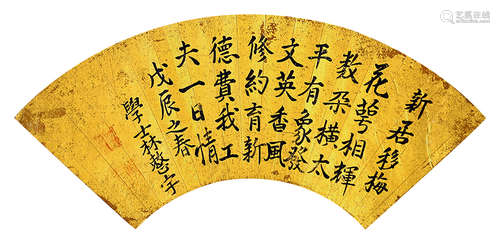 新居移梅
花萼相輝
数朶横太
平有象發
文英香風
修約育新
德費我工
夫一日情
戊辰之春
學士林